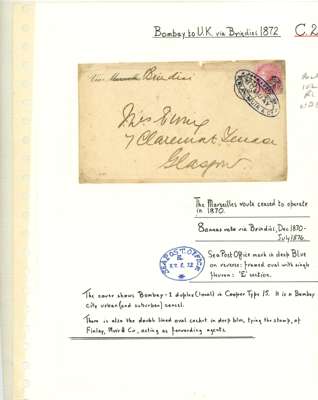 Bombay to U.K via Brindisi 1872
C.2
via Marseilles Brindisi
Miss
7 Claremont Terrace
Glasgow
The Marseilles route ceased to operate
in 1870.
8 annas rate via Brindisi, Dec 1870-
July 1876.
Sea Post Office mark in deep Blue
on reverse: framed oval with single
fleuron: 'E' section.
SEA POST OFFICE
E
The cover shows Bombay-1 duplex (town) in Cooper Type 15. It is a Bombay
city urban (and suburban) cancel.
There is also the double lined oval cachet in deep blue, tying the stamp, of
Finlay, Muir & Co, acting as forwarding agents.